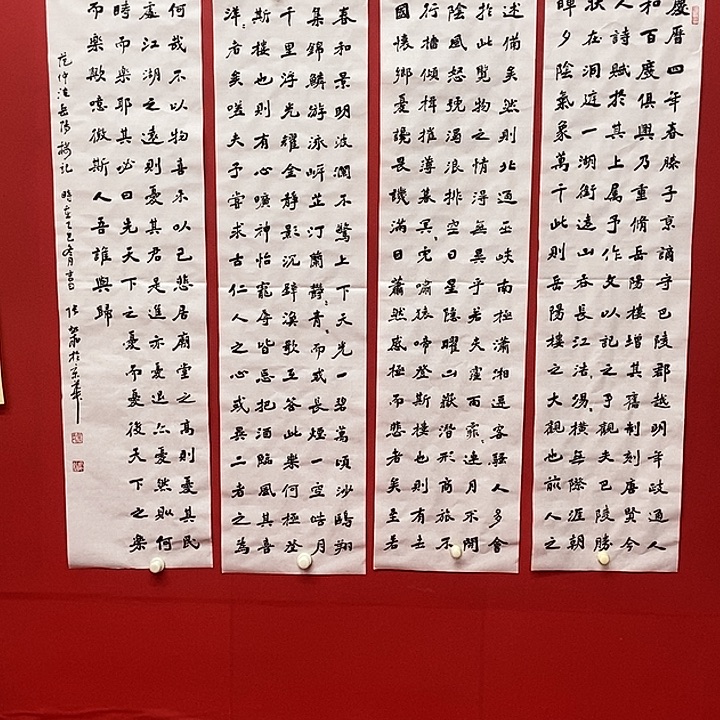 慶曆四年春滕子京謫守巴陵郡越明年政通人
和百廢俱興乃重脩岳陽樓增其舊制刻唐賢今
人詩賦於其上屬予作文以記之予觀夫巴陵勝
狀在洞庭一湖銜遠山吞長江浩〻湯〻橫無際涯朝
暉夕陰氣象萬千此則岳陽樓之大觀也前人之
述備矣然則北通巫峽南極瀟湘遷客騷人多會
於此覽物之情得無異乎若夫霪雨霏〻連月不開
陰風怒號濁浪排空日星隱曜山嶽潛形商旅不
行檣傾楫摧薄暮冥〻虎嘯猿啼登斯樓也則有去
國懷鄉憂讒畏譏滿目蕭然感極而悲者矣至若
春和景明波瀾不驚上下天光一碧萬頃沙鷗翔
集錦鱗游泳岸芷汀蘭鬱〻青〻而或長煙一空皓月
千里浮光耀金靜影沉璧漁歌互答此樂何極登
斯樓也則有心曠神怡寵辱皆忘把酒臨風其喜
洋〻者矣嗟夫予嘗求古仁人之心或異二者之為
何哉不以物喜不以己悲居廟堂之高則憂其民
處江湖之遠則憂其君是進亦憂退亦憂然則何
時而樂耶其必曰先天下之憂而憂後天下之樂
而樂歟噫微斯人吾誰與歸
范仲淹岳陽樓記 時在乙巳 月吉日 張 於京華